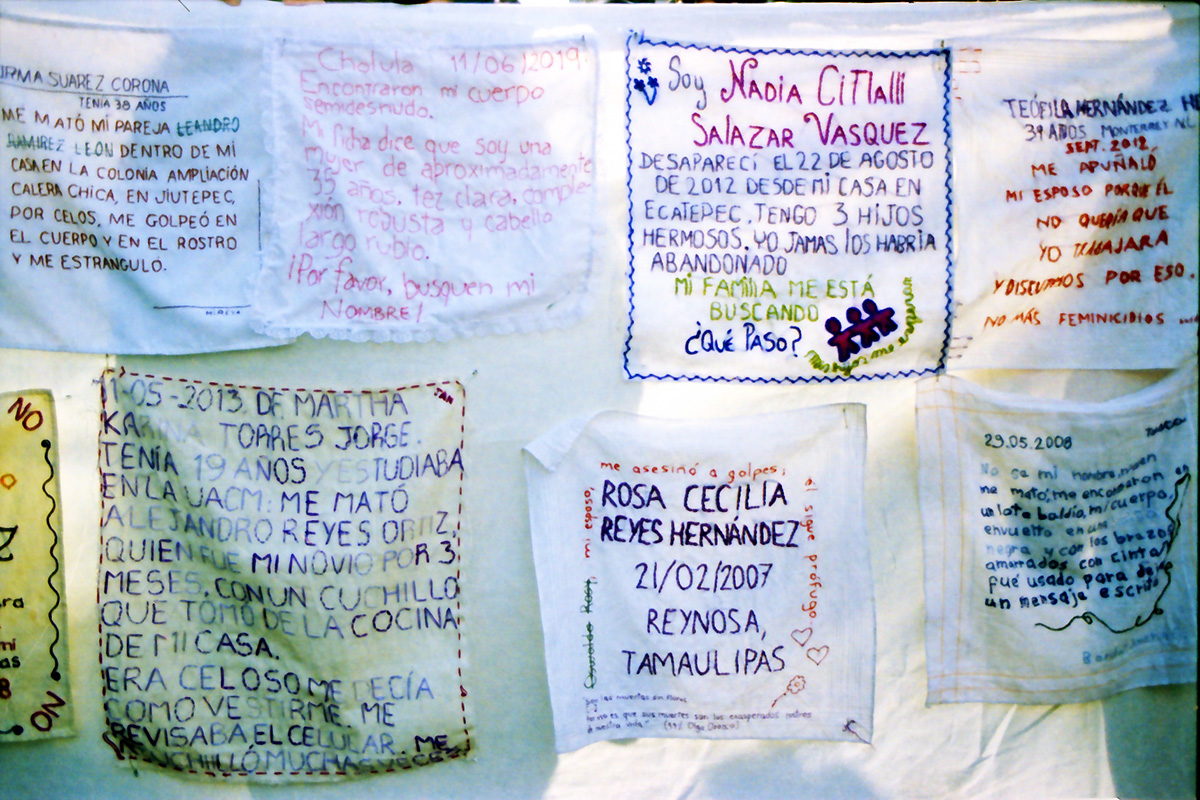 IRMA SUAREZ CORONA
TENÍA 38 AÑOS
ME MATÓ MI PAREJA LEANDRO
RAMIREZ LEÓN DENTRO DE MI
CASA EN LA COLONIA AMPLIACIÓN
CALERA CHICA, EN JIUTEPEC,
POR CELOS, ME GOLPEÓ EN
EL CUERPO Y EN EL ROSTRO
Y ME ESTRANGULÓ.
MIREYA
Cholula 11/06/2019
Encontraron mi cuerpo
semidesnudo.
Mi ficha dice que soy una
mujer de aproximadamente
35 años, tez clara, comple-
xión robusta y cabello
largo rubio.
¡Por favor, busquen mi
Nombre!
Soy NADIA CITlalli
SALAZAR VASQUEZ
DESAPARECÍ EL 22 DE AGOSTO
DE 2012 DESDE MI CASA EN
ECATEPEC. TENGO 3 HIJOS
HERMOSOS. YO JAMAS lOS HABRÍA
ABANDONADO
MI FAMILIA ME ESTÁ
BUSCANDO
¿QUÉ PASO?
TEÓFILA HERNÁNDEZ
39 AÑOS MONTERREY N.L.
SEPT. 2012
ME APUÑALÓ
MI ESPOSO PORQUE ÉL
NO QUERÍA QUE
YO TRABAJARA
Y DISCUTIMOS POR ESO.
NO MÁS FEMINICIDIOS
NO
mi
as
8
NO
11-05-2013. DE MARTHA
KARINA TORRES JORGE.
TENÍA 19 AÑOS Y ESTUDIABA
EN LA UACM: ME MATÓ
ALEJANDRO REYES ORTIZ,
QUIEN FUE MI NOVIO POR 3
MESES, CON UN CUCHILLO
QUE TOMÓ DE LA COCINA
DE MI CASA.
ERA CELOSO ME DECÍA
COMO VESTIRME. ME
REVISABA EL CELULAR. ME
ACUCHILLÓ MUCHAS VECES
me asesinó a golpes;
él sigue prófugo
mi esposo,
ROSA CECILIA
REYES HERNÁNDEZ
21/02/2007
REYNOSA,
TAMAULIPAS
29.05.2008
No se mi nombre, quien
me mató; me encontraron en
un lote baldío, mi cuerpo,
envuelto en una
negra y con los brazos
amarrados con cinta
fué usado para dejar
un mensaje escrito